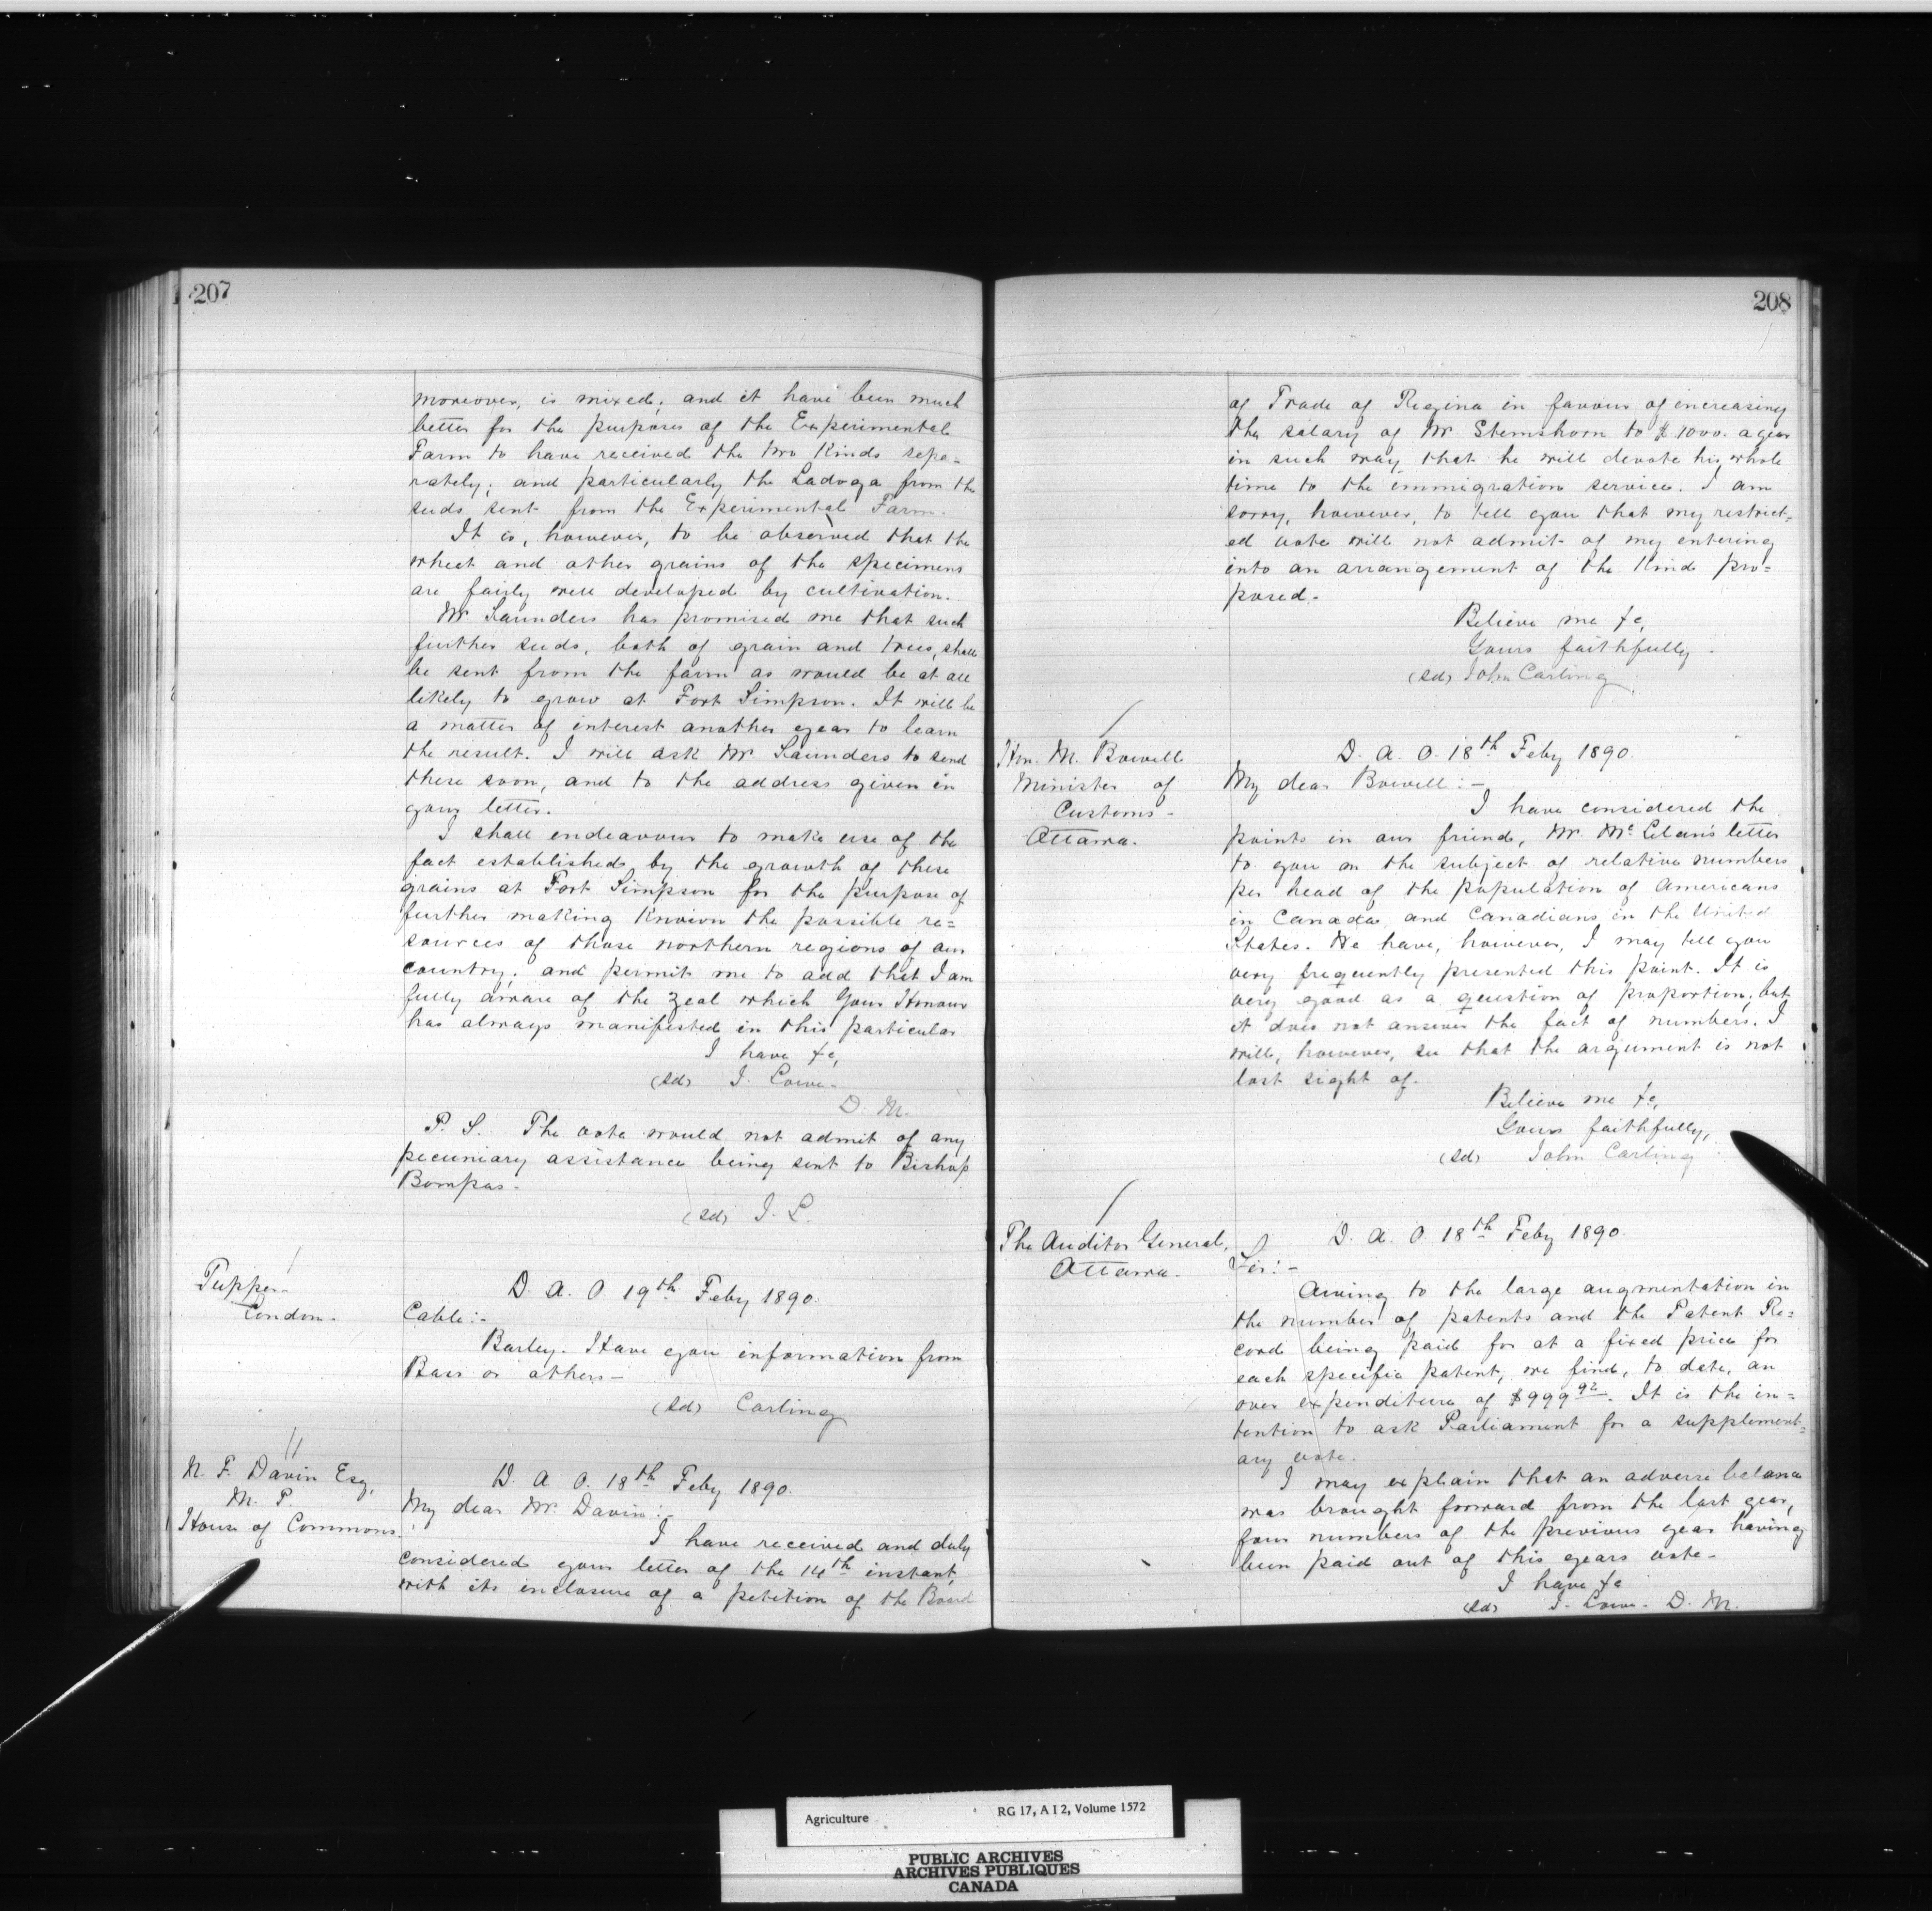 207
moreover, is mixed; and it have been much
better for the purposes of the Experimental
Farm to have received the two kinds sepa=
rately; and particularly the Ladoga from the
seeds sent from the Experimental Farm.
It is, however, to be observed that the
wheat and other grains of the specimens
are fairly well developed by cultivation.
Mr Saunders has promised me that such
further seeds, both of grain and trees, shall
be sent from the farm as would be at all
likely to grow at Fort Simpson. It will be
a matter of interest another year to learn
the result. I will ask Mr. Saunders to send
these soon, and to the address given in
your letter.
I shall endeavour to make use of the
fact established by the growth of these
grains at Fort Simpson for the purpose of
further making known the possible re=
sources of those northern regions of our
country; and permit me to add that I am
fully aware of the zeal which Your Honour
has always manifested in this particular
I have &c,
(sd) J. Lowe.
D. M.
P. S. The vote would not admit of any
pecuniary assistance being sent to Bishop
Bompas.
(sd) J. L.
Tupper
London.
D. A. O. 19th Feby 1890.
Cable:-
Barley. Have you information from
Bass or others-
(sd) Carling
N. F. Davin Esq,
M. P.
House of Commons.
D. A. O. 18th Feby 1890.
My dear Mr. Davin:-
I have received and duly
considered your letter of the 14th instant,
with its inclosure of a petition of the Board
208
of Trade of Regina in favour of increasing
the salary of Mr. Stemshorn to $1000. a year
in such way that he will devote his whole
time to the immigration service. I am
sorry, however, to tell you that my restrict=
ed vote will not admit of my entering
into an arrangement of the kind pro=
posed.
Believe me &c,
Yours faithfully.
(sd) John Carling
Hon. M. Bowell
Minister of
Customs-
Ottawa.
D. A. O. 18th Feby 1890.
My dear Bowell:-
I have considered the
points in our friend, Mr. McLelan's letter
to you on the subject of relative numbers
per head of the population of Americans
in Canada, and Canadians in the United
States. We have, however, I may tell you
very frequently presented this point. It is
very good as a question of proportion; but
it does not answer the fact of numbers. I
will, however, see that the argument is not
lost sight of.
Believe me &c,
Yours faithfully,
(sd) John Carling
The Auditor General,
Ottawa.
D. A. O. 18th Feby 1890.
Sir:-
Owing to the large augmentation in
the number of patents and the Patent Re=
cord being paid for at a fixed price for
each specific patent, we find, to date, an
over expenditure of $999 92. It is the in=
tention to ask Parliament for a supplement=
ary vote.
I may explain that an adverse balance
was brought forward from the last year,
four numbers of the previous year having
been paid out of this years vote-
I have &c
(sd) J. Lowe. D. M.
Agriculture RG 17, A I 2, Volume 1572
PUBLIC ARCHIVES
ARCHIVES PUBLIQUES
CANADA